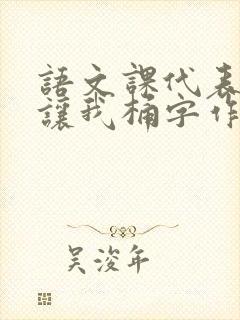 語文課代表
讓我桶字作
吳浚年